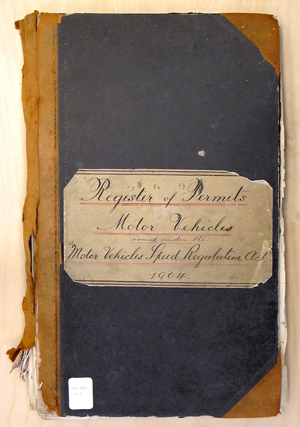 Register of Permits
Motor Vehicles
issued under the
"Motor Vehicles Speed Regulation Act
1904.